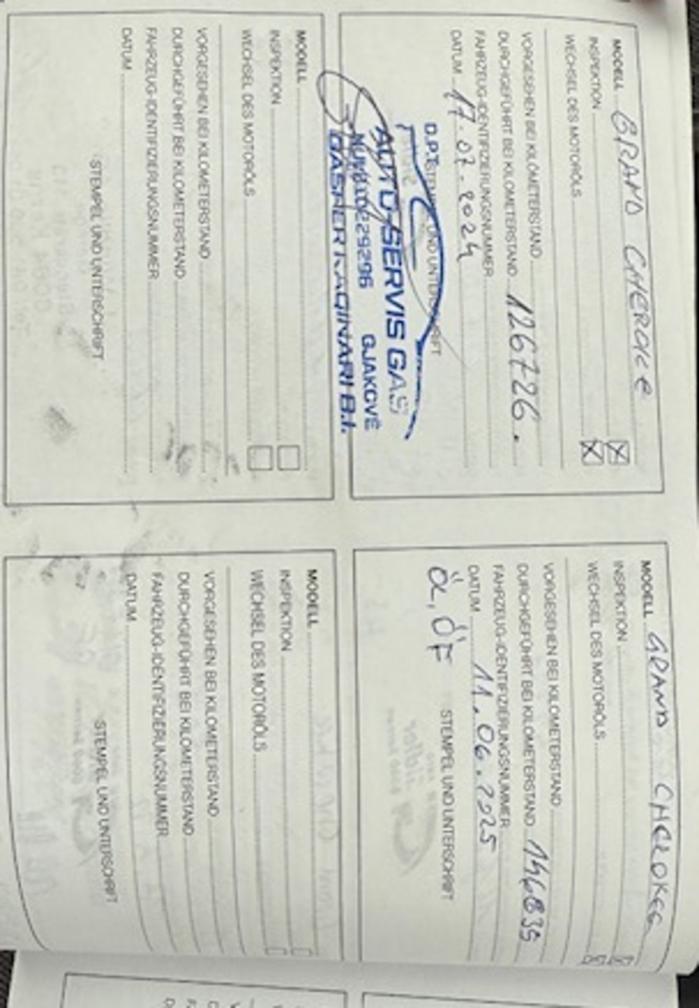 MODELL GRAND CHEROKE
INSPEKTION
WECHSEL DES MOTORÖLS
VORGESEHEN BEI KILOMETERSTAND
DURCHGEFÜHRT BEI KILOMETERSTAND 126726.
FAHRZEUG-IDENTIFIZIERUNGSNUMMER
DATUM 17.07.2024
STEMPEL UND UNTERSCHRIFT
D.P.T.
AUTO-SERVIS GAS
GJAKOVË
MODELL
INSPEKTION
WECHSEL DES MOTORÖLS
VORGESEHEN BEI KILOMETERSTAND
DURCHGEFÜHRT BEI KILOMETERSTAND
FAHRZEUG-IDENTIFIZIERUNGSNUMMER
DATUM
STEMPEL UND UNTERSCHRIFT
MODELL GRAND CHEROKEE
INSPEKTION
WECHSEL DES MOTORÖLS
VORGESEHEN BEI KILOMETERSTAND
DURCHGEFÜHRT BEI KILOMETERSTAND 146839
FAHRZEUG-IDENTIFIZIERUNGSNUMMER
DATUM 11.06.2025
STEMPEL UND UNTERSCHRIFT
Öl, ÖF
MODELL
INSPEKTION
WECHSEL DES MOTORÖLS
VORGESEHEN BEI KILOMETERSTAND
DURCHGEFÜHRT BEI KILOMETERSTAND
FAHRZEUG-IDENTIFIZIERUNGSNUMMER
DATUM
STEMPEL UND UNTERSCHRIFT